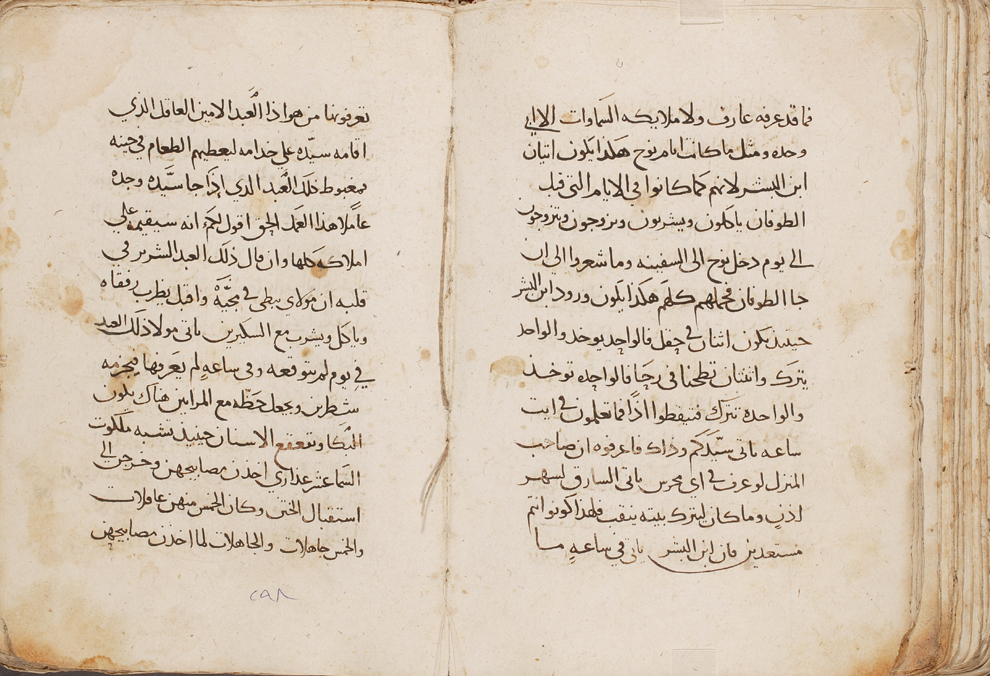 فما قد عرفه عارف ولا ملايكه السماوات الا ابي
وحده ومثل ما كانت ايام نوح هكذا يكون اتيان
ابن البشر لانهم كما كانوا في الايام التي قبل
الطوفان ياكلون ويشربون ويزوجون ويتزوجون
الى يوم دخل نوح الى السفينه وما شعروا الى ان
جا الطوفان فحملهم كلهم هكذا يكون ورود ابن البشر
حينيذ يكون اثنان في حقل فالواحد يوخد والواحد
يترك واثنتان تطحنا في رحا فالواحده توخد
والواحده تترك فتيقظوا اذًا فما تعلمون في ايت
ساعه ياتي سيّدكم وذاك فاعرفوه ان صاحب
المنزل لو عرف في اى محرس ياتي السارق لسهر
اذنٍ وما كان ليترك بيته ينقب فلهذا كونوا انتم
مستعدين فان ابن البشر ياتي في ساعهٍ ما
تعرفونها من هو اذا العبد الامين العاقل الذي
اقامه سيّده على خدامه ليعطيهم الطعام في حينه
فمغبوط ذلك العبد الذي اذا جا سيّده وجده
عاملا هذا العمل الحق اقول لكم انه سيقيمه على
املاكه كلها وان قال ذلك العبد الشرير في
قلبه ان مولاى يبطي في مجيّه واقبل يضرب رفقاه
وياكل ويشرب مع السكيرين ياتي مولا ذلك العبد
في يوم لم يتوقعه وفي ساعهٍ لم يعرفها فيجزمه
شطرين ويجعل حظّه مع المرايين هناك يكون
البكا وتقعقع الاسنان حينيذ تشبه ملكوت
السما عشر عذارى اخذن مصابيحهن وخرجن الى
استقبال الختن وكان الخمس منهن عاقلات
والخمس جاهلات والجاهلات لما اخذن مصابيحهن
٢٩٨